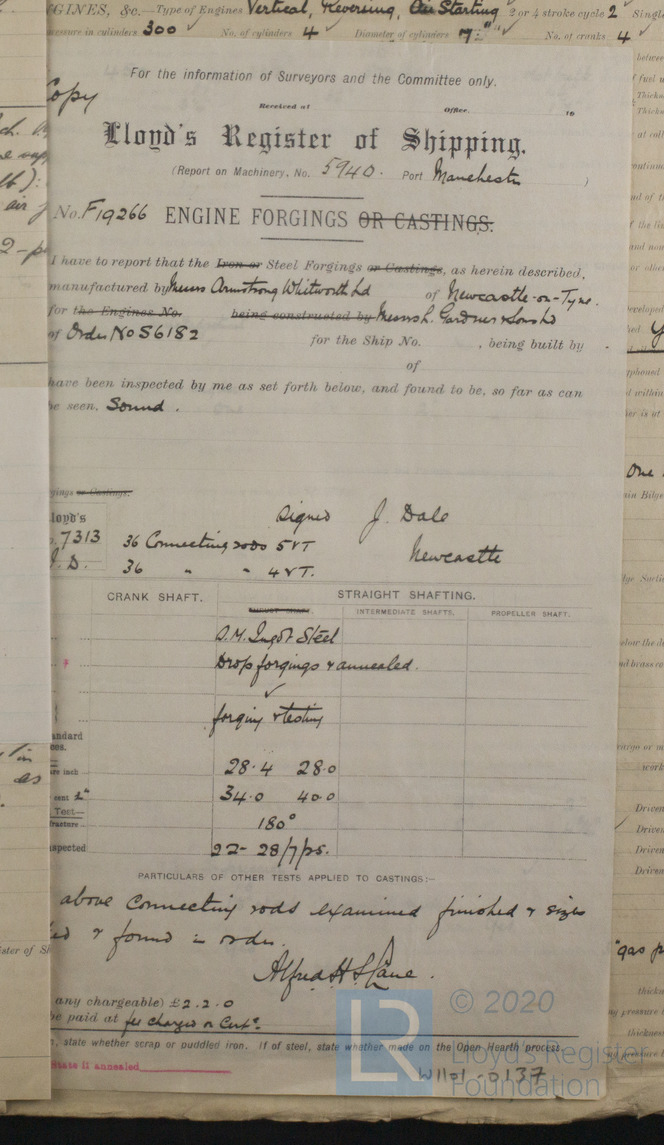 GINES, &c.—Type of Engines Vertical, Reversing, Air Starting 2 or 4 stroke cycle 2 Singl
pressure in cylinders 300 No. of cylinders 4 Diameter of cylinders 7 No. of cranks 4
Copy
For the information of Surveyors and the Committee only.
Received at Office 19
Lloyd's Register of Shipping.
(Report on Machinery, No. 5940. Port Manchester )
No. F19266 ENGINE FORGINGS OR CASTINGS.
I have to report that the Iron or Steel Forgings or Castings, as herein described,
manufactured by Messrs Armstrong Whitworth Ld of Newcastle-on-Tyne.
for the Engines No. being constructed by Messrs L. Gardner & Sons Ld
of Order No S6182 for the Ship No. , being built by
of
have been inspected by me as set forth below, and found to be, so far as can
be seen, Sound.
gings or Castings.
loyd's
7313
J. D.
Signed J. Dale
36 Connecting rods 5 VT Newcastle
36 " " 4 VT.
CRANK SHAFT. STRAIGHT SHAFTING.
THRUST SHAFT. INTERMEDIATE SHAFTS. PROPELLER SHAFT.
S.M. Ingot Steel
Drop forgings & annealed.
forging & testing
andard
28.4 28.0
are inch
cent 2" 34.0 40.0
Test—
fracture 180°
nspected 22- 28/7/25.
PARTICULARS OF OTHER TESTS APPLIED TO CASTINGS:—
above Connecting rods examined finished & sizes
ed & found in order.
Alfred H. S. Lane.
any chargeable) £2.2.0
be paid at fee charged on Cert.
, state whether scrap or puddled iron. If of steel, state whether made on the Open Hearth process
state if annealed
W1101-0137
LR
© 2020
Lloyd's Register
Foundation